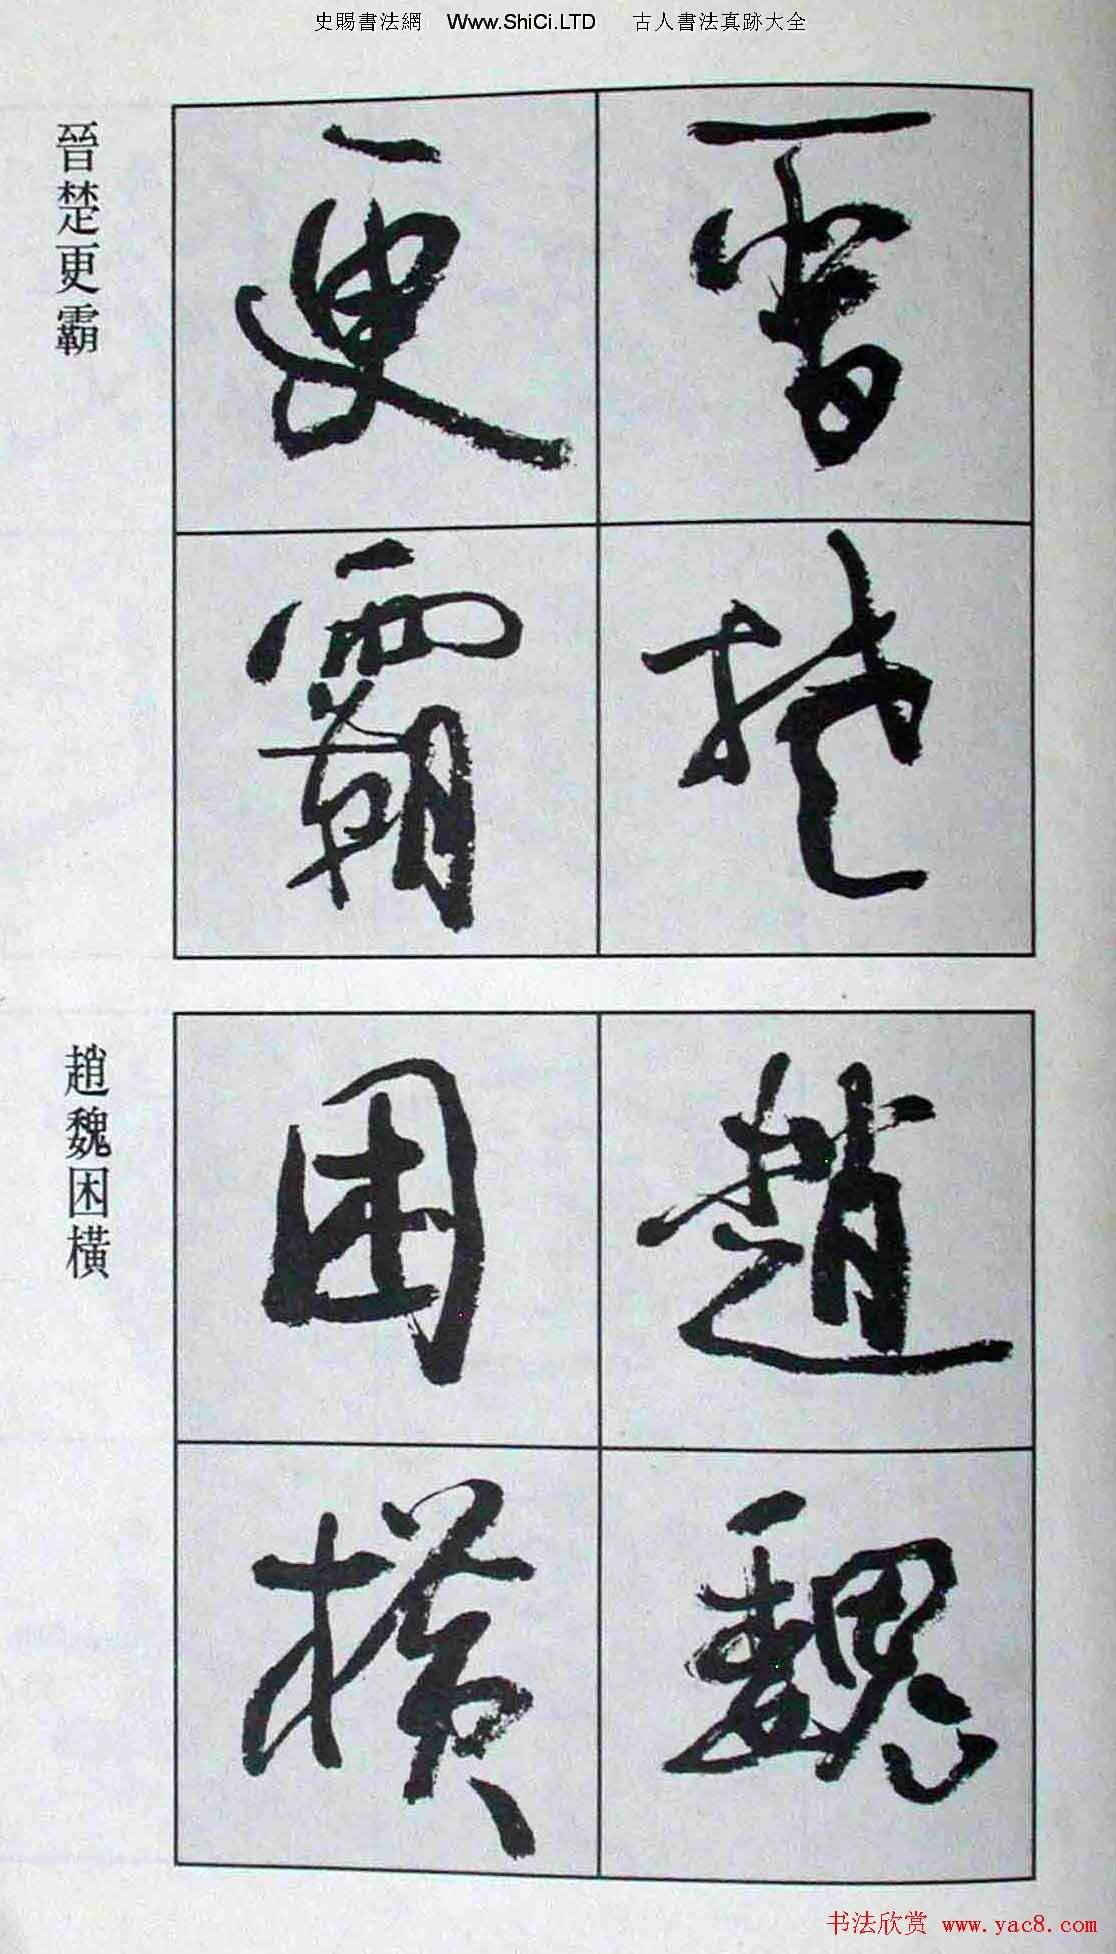 史賜書法網 Www.ShiCi.LTD 古人書法真跡大全
晉楚
更霸
晉楚更霸
趙魏
困橫
趙魏困橫
书法欣赏 www.yac8.com